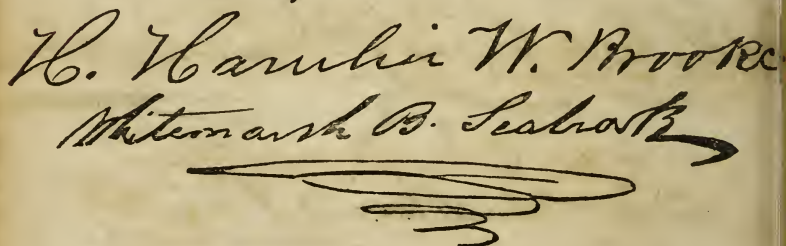 H. Hamlin W. Brooke
Whitemarsh B. Seabrook